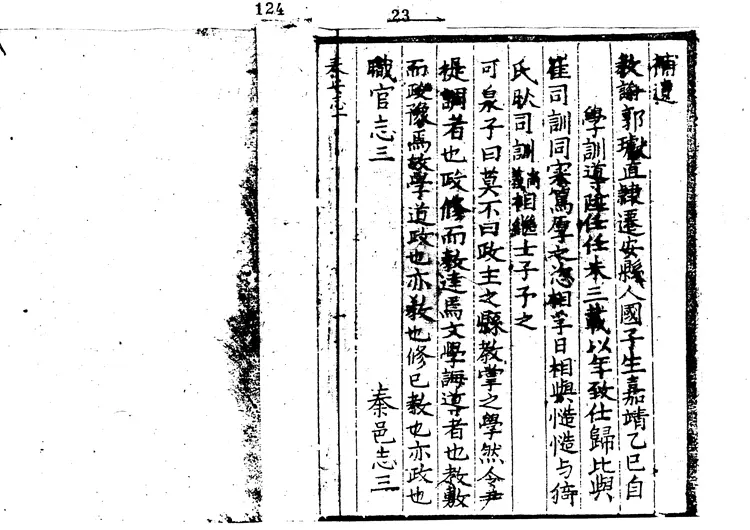 124
23
補遺
教諭郭璥直隸遷安縣人國子生嘉靖乙巳自
學訓導陞任任未三載以年致仕歸比與
崔司訓同寀篤厚之洽相孚日相與慥慥与
氏臥司訓 相繼士子予之
可泉子曰莫不曰政主之縣教掌之學然令尹
提調者也政修而教達焉文學誨導者也教敷
而政豫焉故學道政也亦教也修已教也亦政也
職官志三 秦邑志三